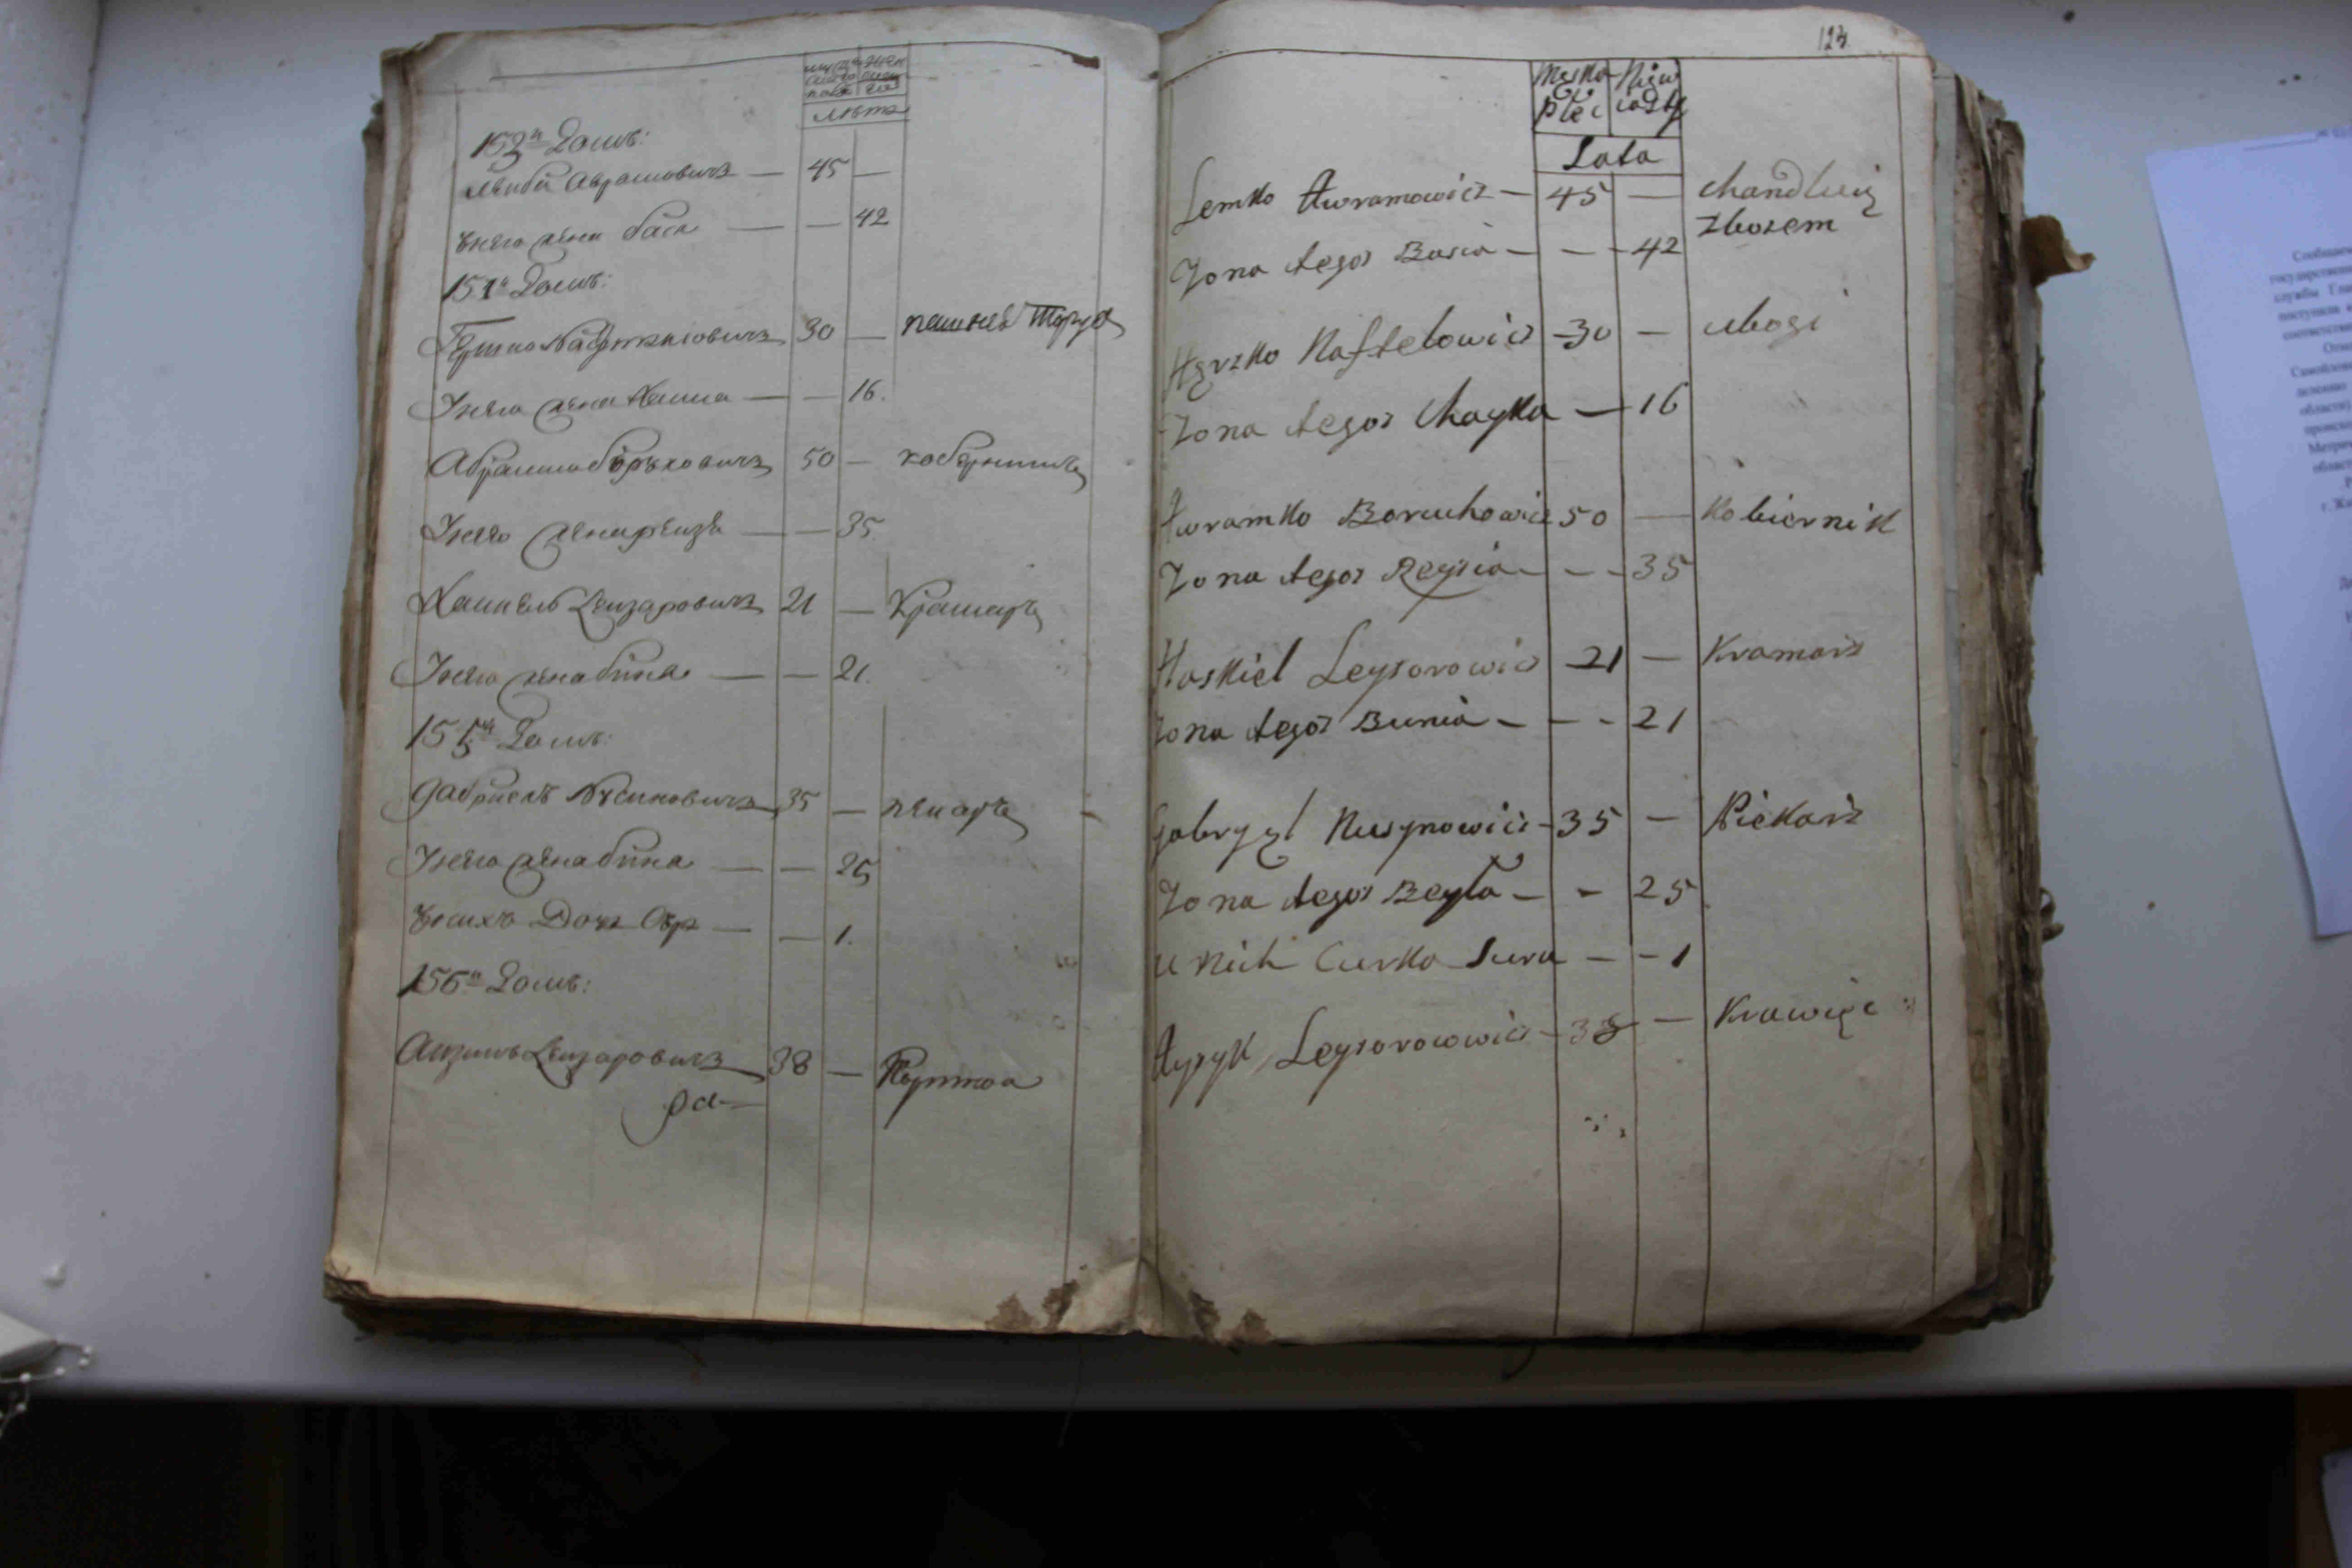 мужеска полу женска
лѣта
153й Домъ:
Лейба Аврамовичъ — 45 —
Унего жена бася — — 42
154й Домъ:
Гершко Нафтелиовичъ 30 —
Унего жена — — 16.
Абрамко борухович 50 — коберникъ
Унего жена рейзя — — 35
Хаскель Лейзаровичъ 21 — Крамаръ
Унего жена буня — — 21.
155й Домъ:
Габриель Нусиновичъ 35 — пекаръ
Унего жена — — 25
Унихъ Дочь Сура — — 1.
156й Домъ:
Айзикъ Лейзаровичъ 38 — Портной
123
Męska Płeć Niewiasty
Lata
Lemko Awramowicz — 45 — Handluią
zbozem
Zona Iegoz Basia — — 42
Herszko Naftelowicz — 30 — Ubogi
Zona Iegoz Chayka — 16
Awramko Boruchowicz 50 — Kobiernik
Zona Iegoz Reyzia — — 35
Haskiel Leyzorowicz 21 — Kramarz
Zona Iegoz Bunia — — 21
Gabryel Nusynowicz — 35 — Piekarz
Zona Iegoz Beyla — — 25
U Nich Curka Sura — — 1
Ayzyk Leyzorowowicz — 38 — Krawiec